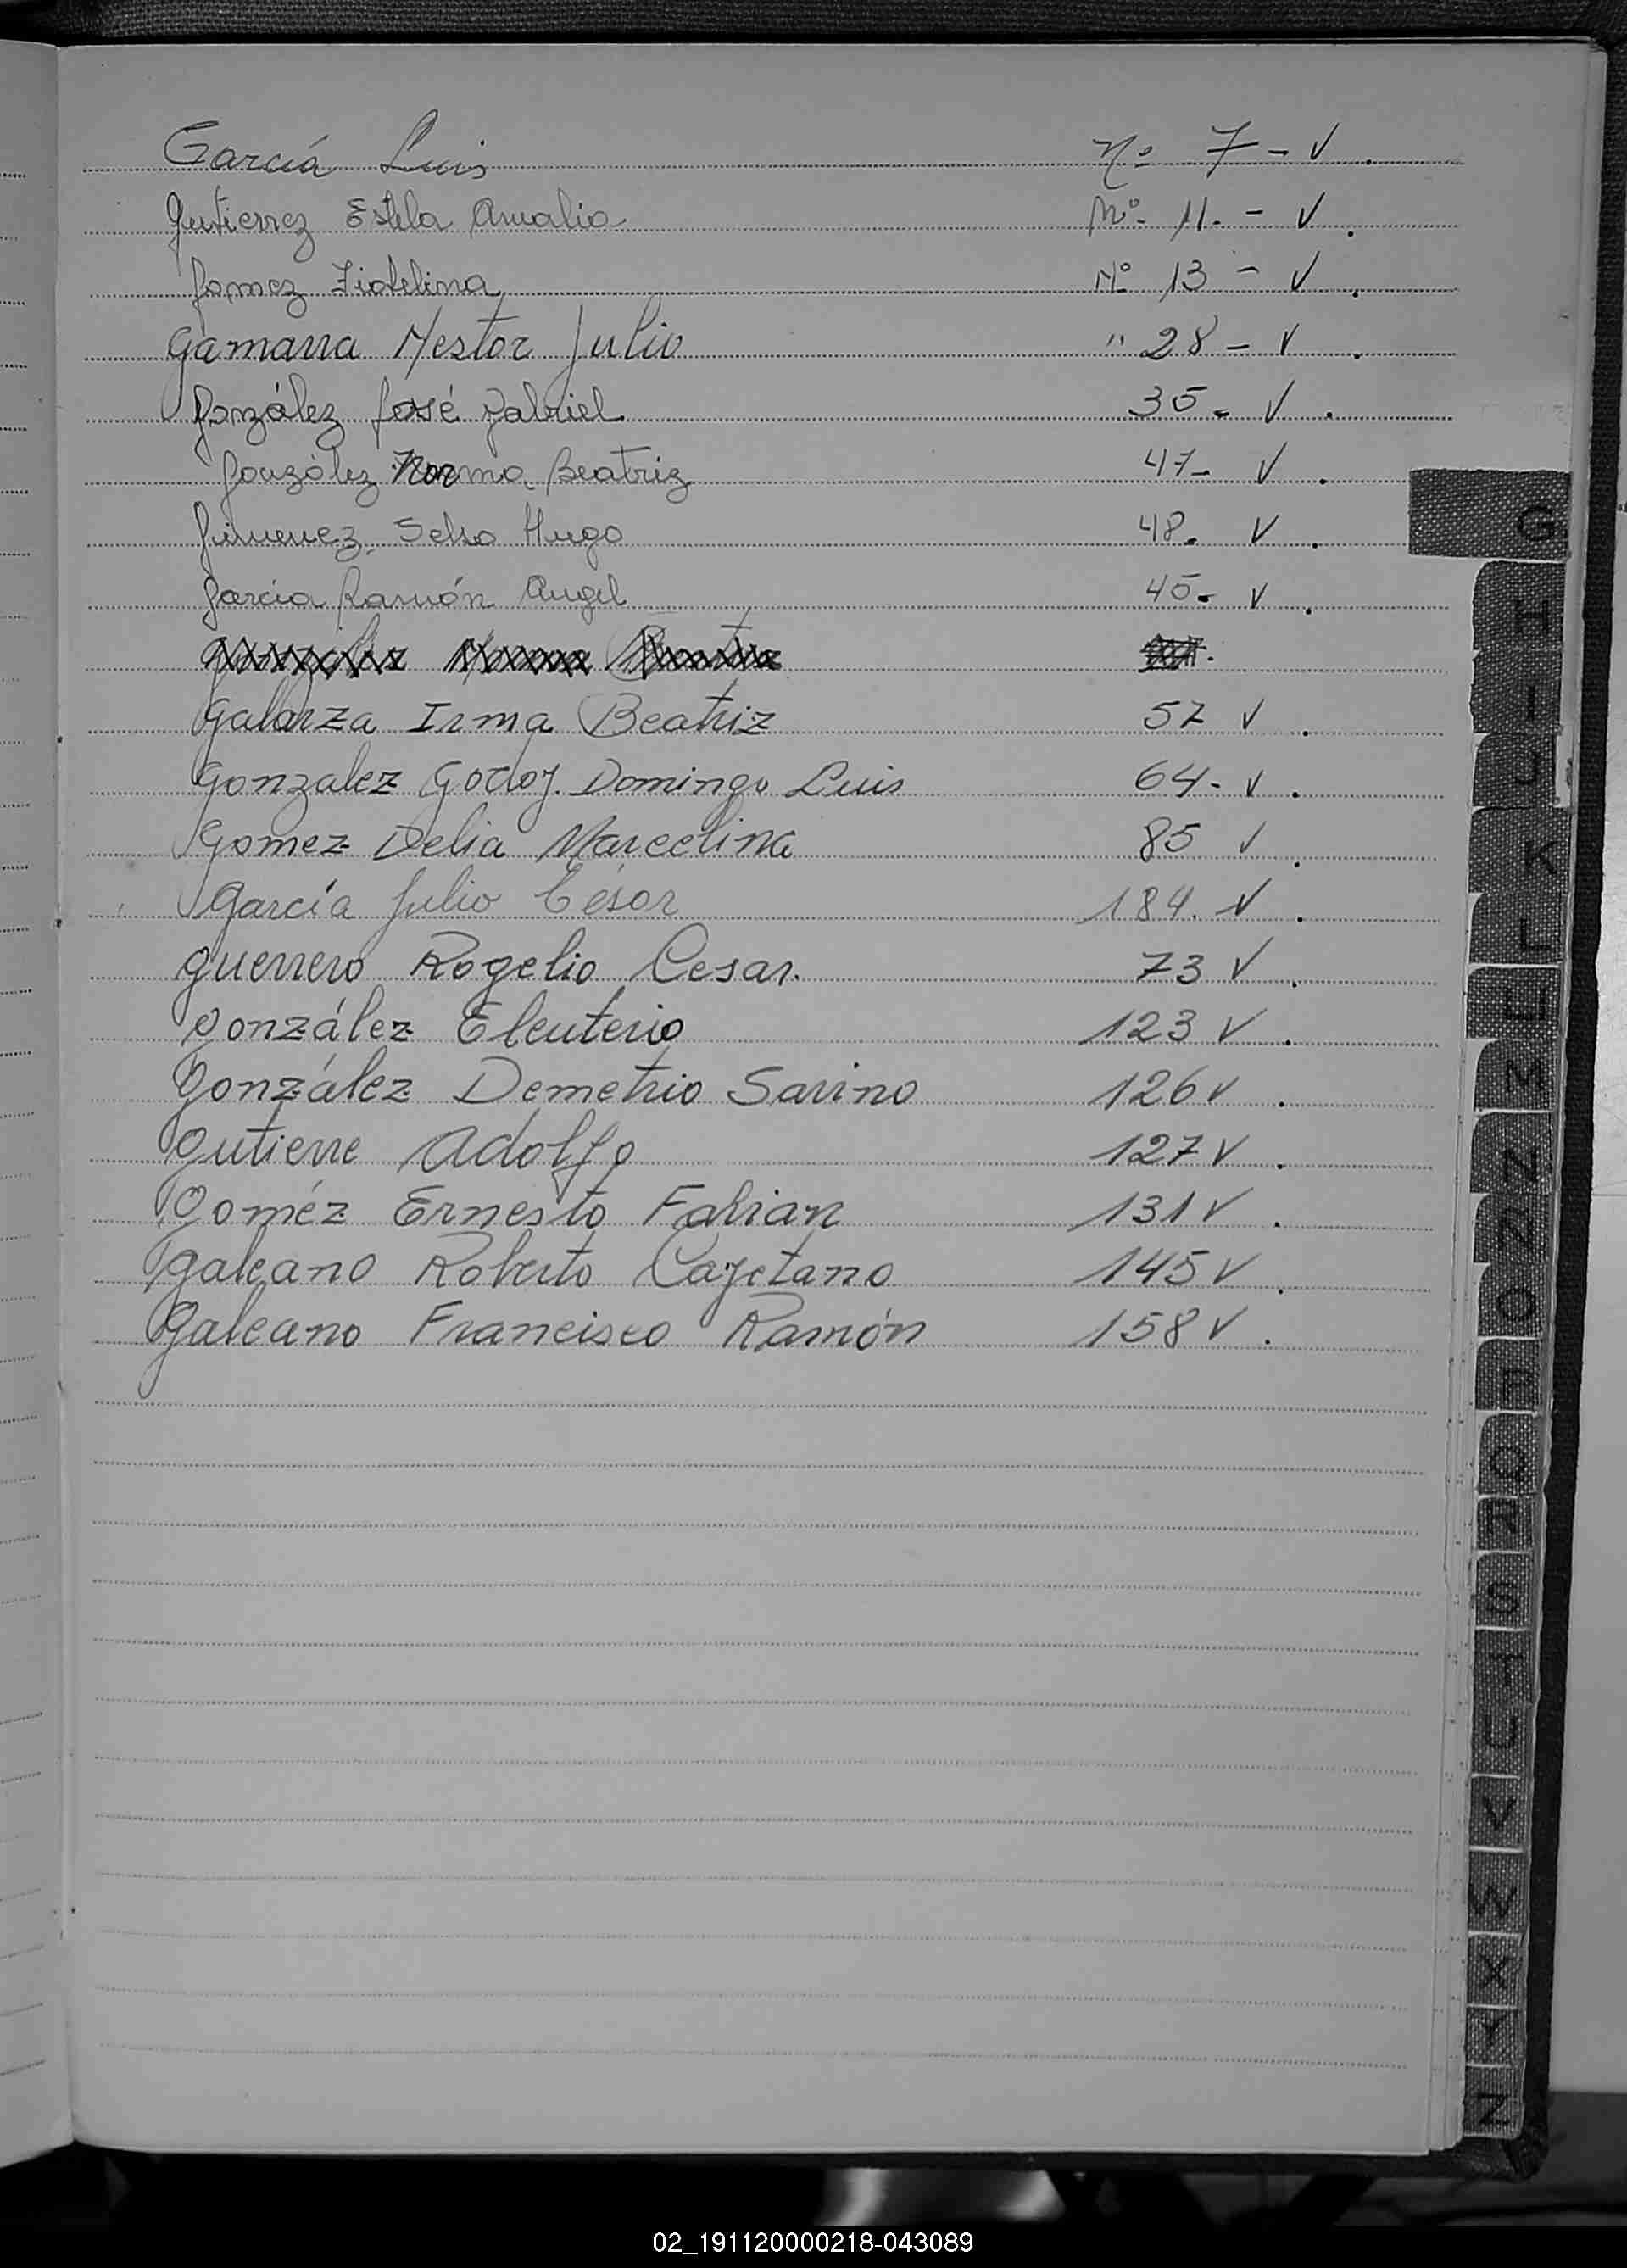 García Luis Nº 7 - V.
Gutierrez Estela Amalia Nº 11. - V.
Gomez Fidelina Nº 13 - V.
Gamarra Nestor Julio " 28 - V.
González José Gabriel 35 - V.
González Norma Beatriz 47 - V.
Gimenez Selso Hugo 48 - V.
García Ramón Angel 45 - V.
Galarza Irma Beatriz 57 V.
Gonzalez Godoy Domingo Luis 64 - V.
Gomez Delia Marcelina 85 V.
García Julio César 184. V.
Guerrero Rogelio Cesar. 73 V.
González Eleuterio 123 V.
González Demetrio Sarino 126 V.
Gutierre Adolfo 127 V.
Goméz Ernesto Fabian 131 V.
Galeano Roberto Cayetano 145 V.
Galeano Francisco Ramón 158 V.
G
H
I
J
K
L
LL
M
N
Ñ
O
P
Q
R
S
T
U
V
W
X
Y
Z
02_191120000218-043089